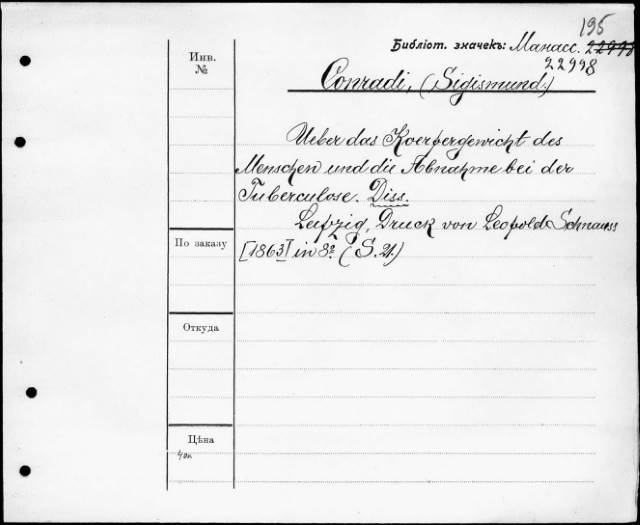 195
Библіот. значекъ: Манасс. 22998
22998
Инв.
№
Conradi, (Sigismund.)
Ueber das Koerpergewicht des
Menschen und die Abnahme bei der
Tuberculose. Diss.
Leipzig, Druck von Leopold Schnauss
[1863] in 8º (S. 21.)
По заказу
Откуда
Цѣна